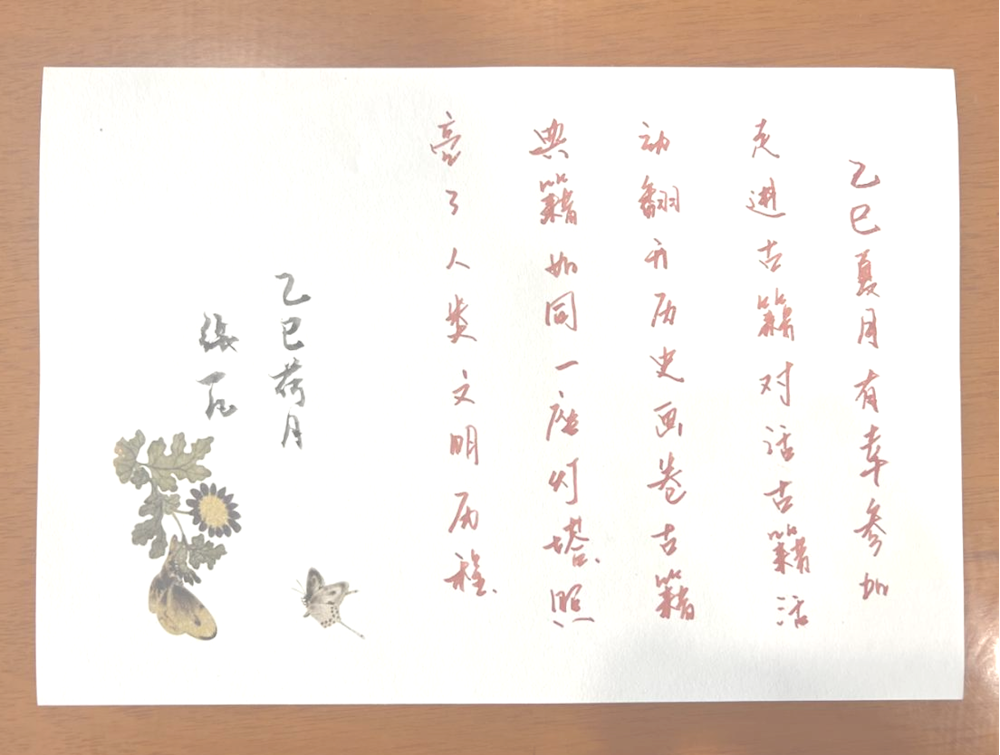 乙巳夏月有幸参加
走进古籍对话古籍活
动翻开历史画卷古籍
典籍如同一座灯塔照
亮了人类文明历程
乙巳荷月